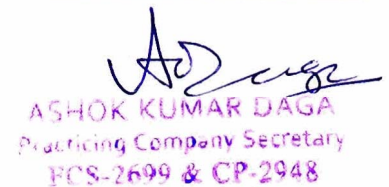 ASHOK KUMAR DAGA
Practicing Company Secretary
FCS-2699 & CP-2948